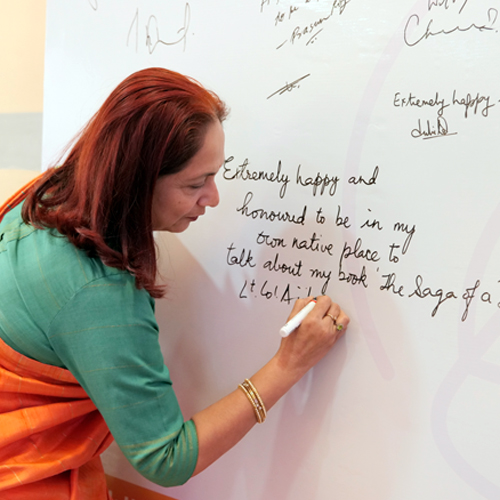 to be
- Basun
Extremely happy
Extremely happy and
honoured to be in my
own native place to
talk about my book 'The Saga of a
Lt. Col